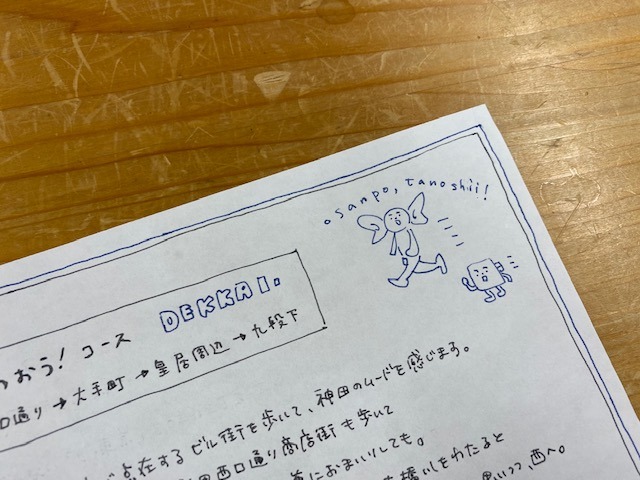 osanpo, tanoshii!
DEKKAI.
おう! コース
通り→大手町→皇居周辺→九段下
点在するビル街を歩いて、神田のムードを感じます。
西口通り商店街も歩いて
におまいりしても。
橋をわたると
思いつつ、西へ。